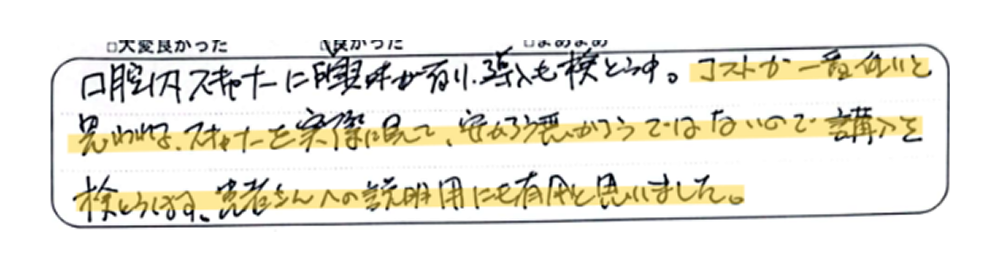 □大変良かった □良かった □まあまあ
口腔内スキャナーに興味が有り、導入も検とう中。コストが一番低いと
思われる、スキャナーを実際に見て、安かろう悪かろうではないので購入を
検とうします。患者さんへの説明用にも有用と思いました。